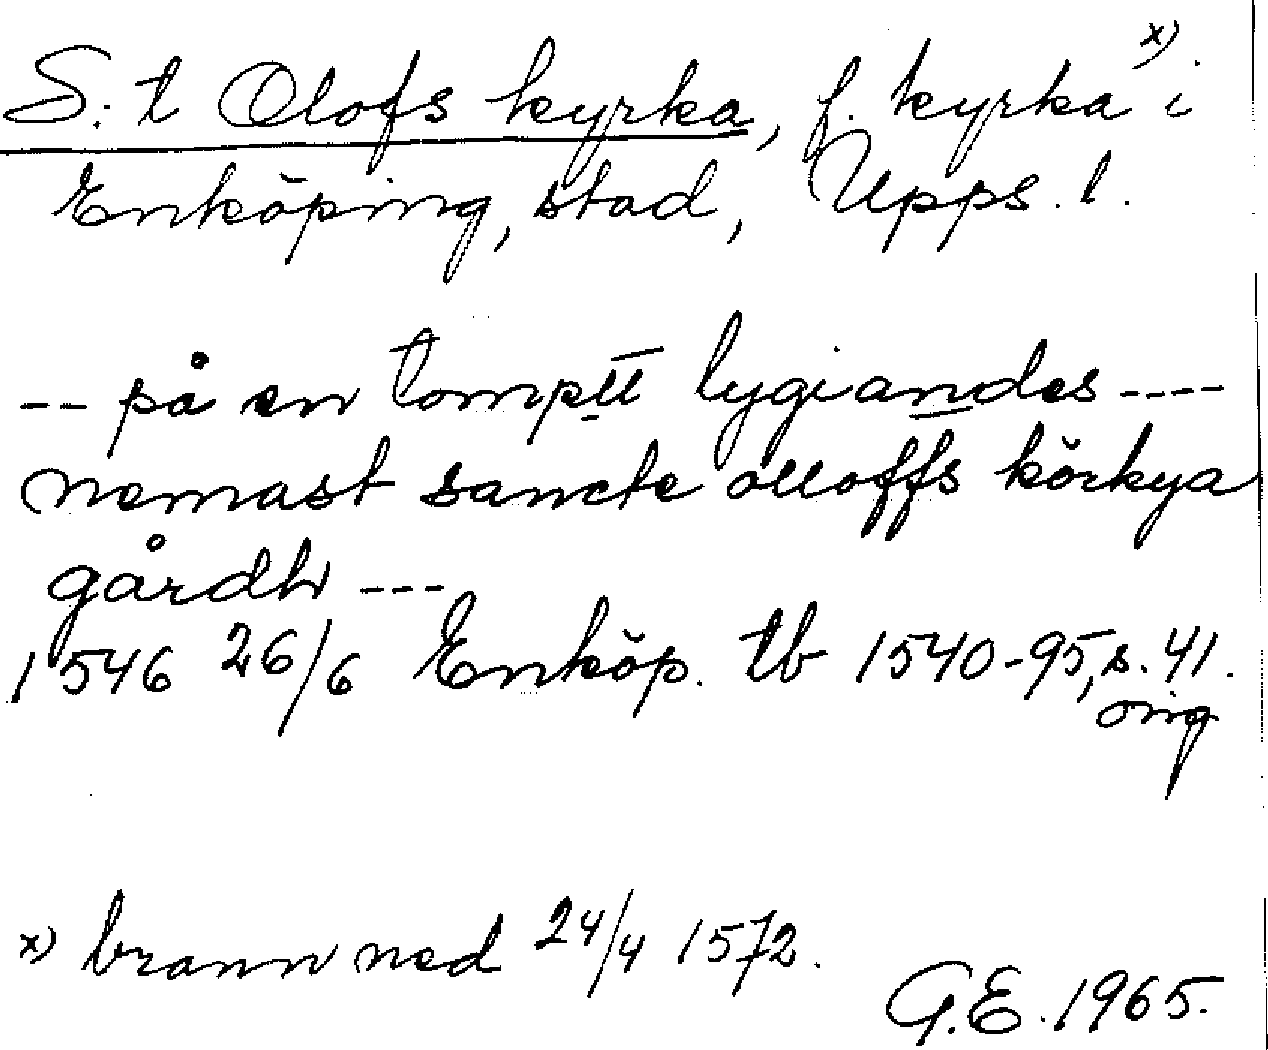 S:t Olofs kyrka, f. kyrka x) i
Enköping, stad, Upps. l.
-- på en tomptt lygiandes ----
nemast sancte olloffs körkya
gårdh ---
1546 26/6 Enköp. tb 1540-95, s. 41.
orig
x) brann ned 24/4 1572.
G.E. 1965.